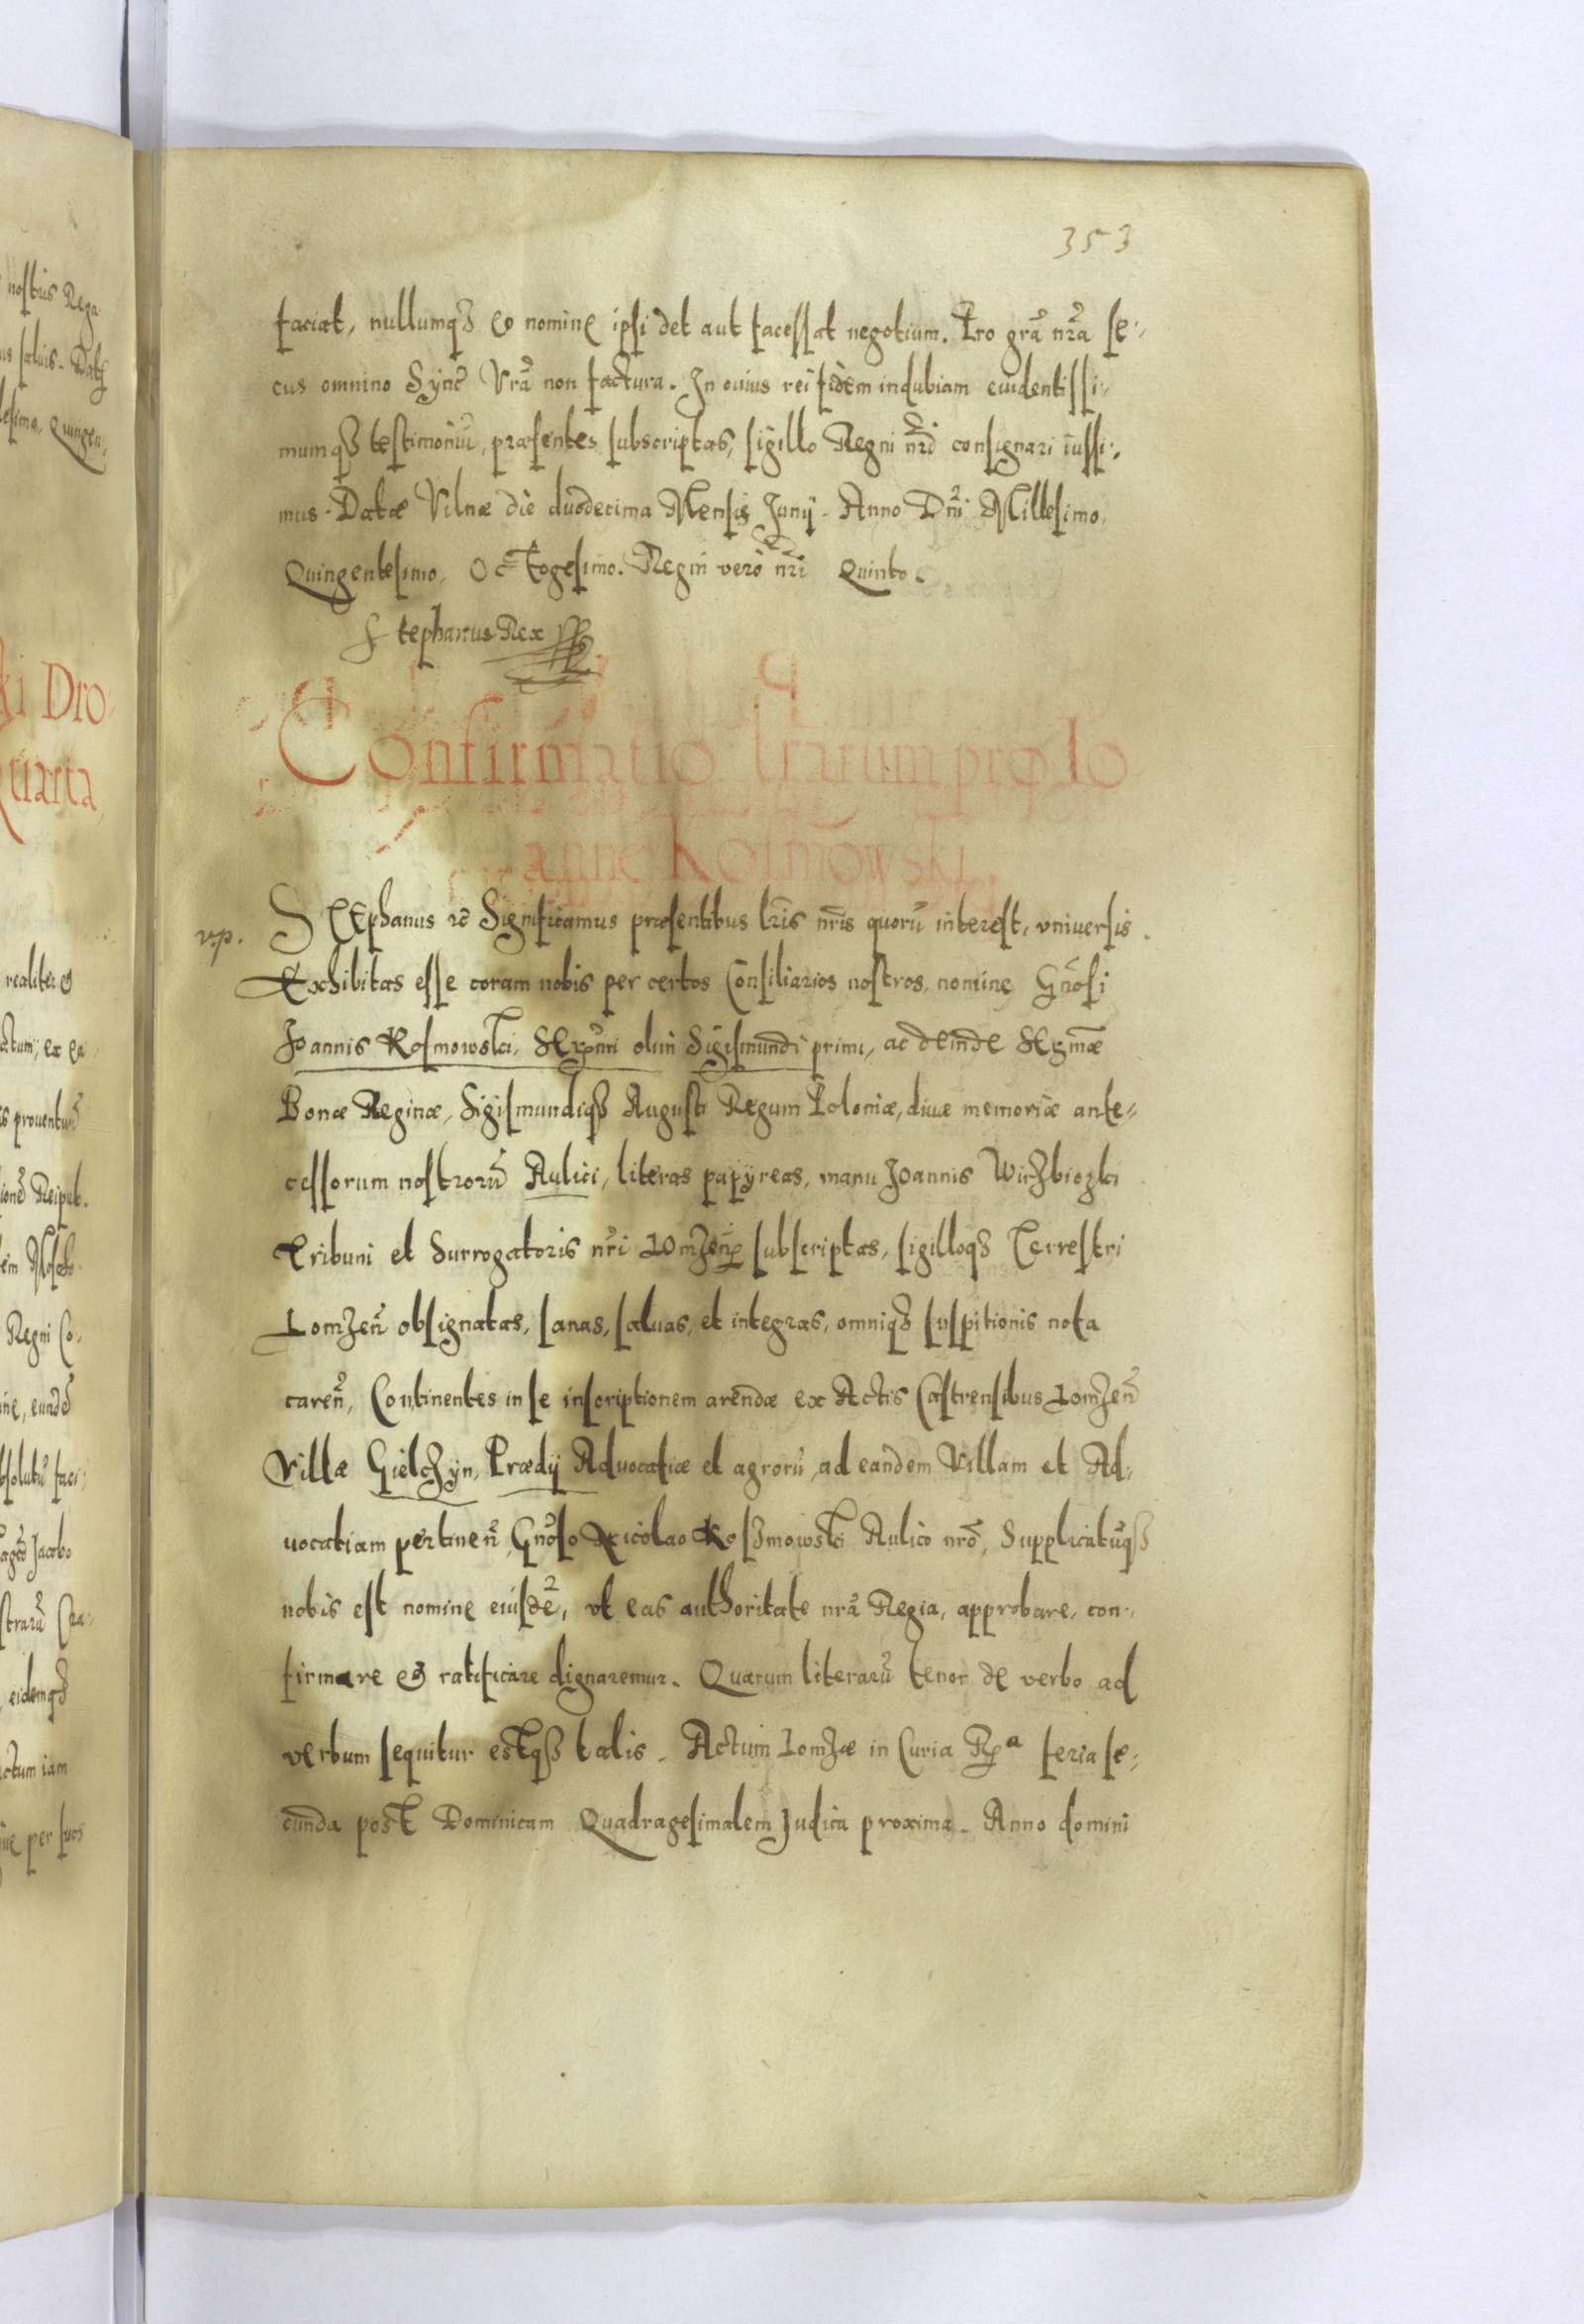 353
faciat, nullumqȝ eo nomine ipsi det aut facessat negotium. Pro grã nrã se-
cus omnino Syncᵗᵉ Vrã non factura. In cuius rei fidem indubiam euidentissi-
mumqȝ testimoniũ, præsentes subscriptas, sigillo Regni nrĩ consignari iussi-
mus. Datæ Vilnæ die duodecima Mensis Junij. Anno Dnĩ Millesimo
Quingentesimo, Octogesimo. Regni vero nrĩ Quinto.
Stephanus Rex
Confirmatio lrarum pro Io
anne Kosmowski.
v.p.
STEphanus rc̃ Significamus præsentibus lrĩs nrĩs quorũ interest, vniuersis.
Exhibitas esse coram nobis per certos Consiliarios nostros, nomine Gñosi
Joannis Kosmowski, Serẽmi olim Sigismundi primi, ac deinde Sermæ
Bonæ Reginæ, Sigismundiqȝ Augusti Regum Poloniæ, diuæ memoriæ ante-
cessorum nostrorũ Aulici, literas papyreas, manu Joannis Wierzbiozki
Tribuni et Surrogatoris nrĩ Lomzeñ subscriptas, sigilloqȝ Terrestri
Lomzeñ obsignatas, sanas, saluas, et integras, omniqȝ suspitionis nota
careñ, Continentes in se inscriptionem arendæ ex Actis Castrensibus Lomzeñ
Villæ Gielczyn, Prædij Aduocatiæ et agrorũ, ad eandem Villam et Ad-
uocatiam pertineñ, Gñoso Nicolao Koszmowski Aulico nrõ, Supplicatũqȝ
nobis est nomine eiusdẽ, vt eas authoritate nrã Regia, approbare, con-
firmare & ratificare dignaremur. Quarum literarũ tenor de verbo ad
verbum sequitur estqȝ talis. Actum Lomzæ in Curia Rᵃ feria se-
cunda post Dominicam Quadragesimalem Judica proxima. Anno domini